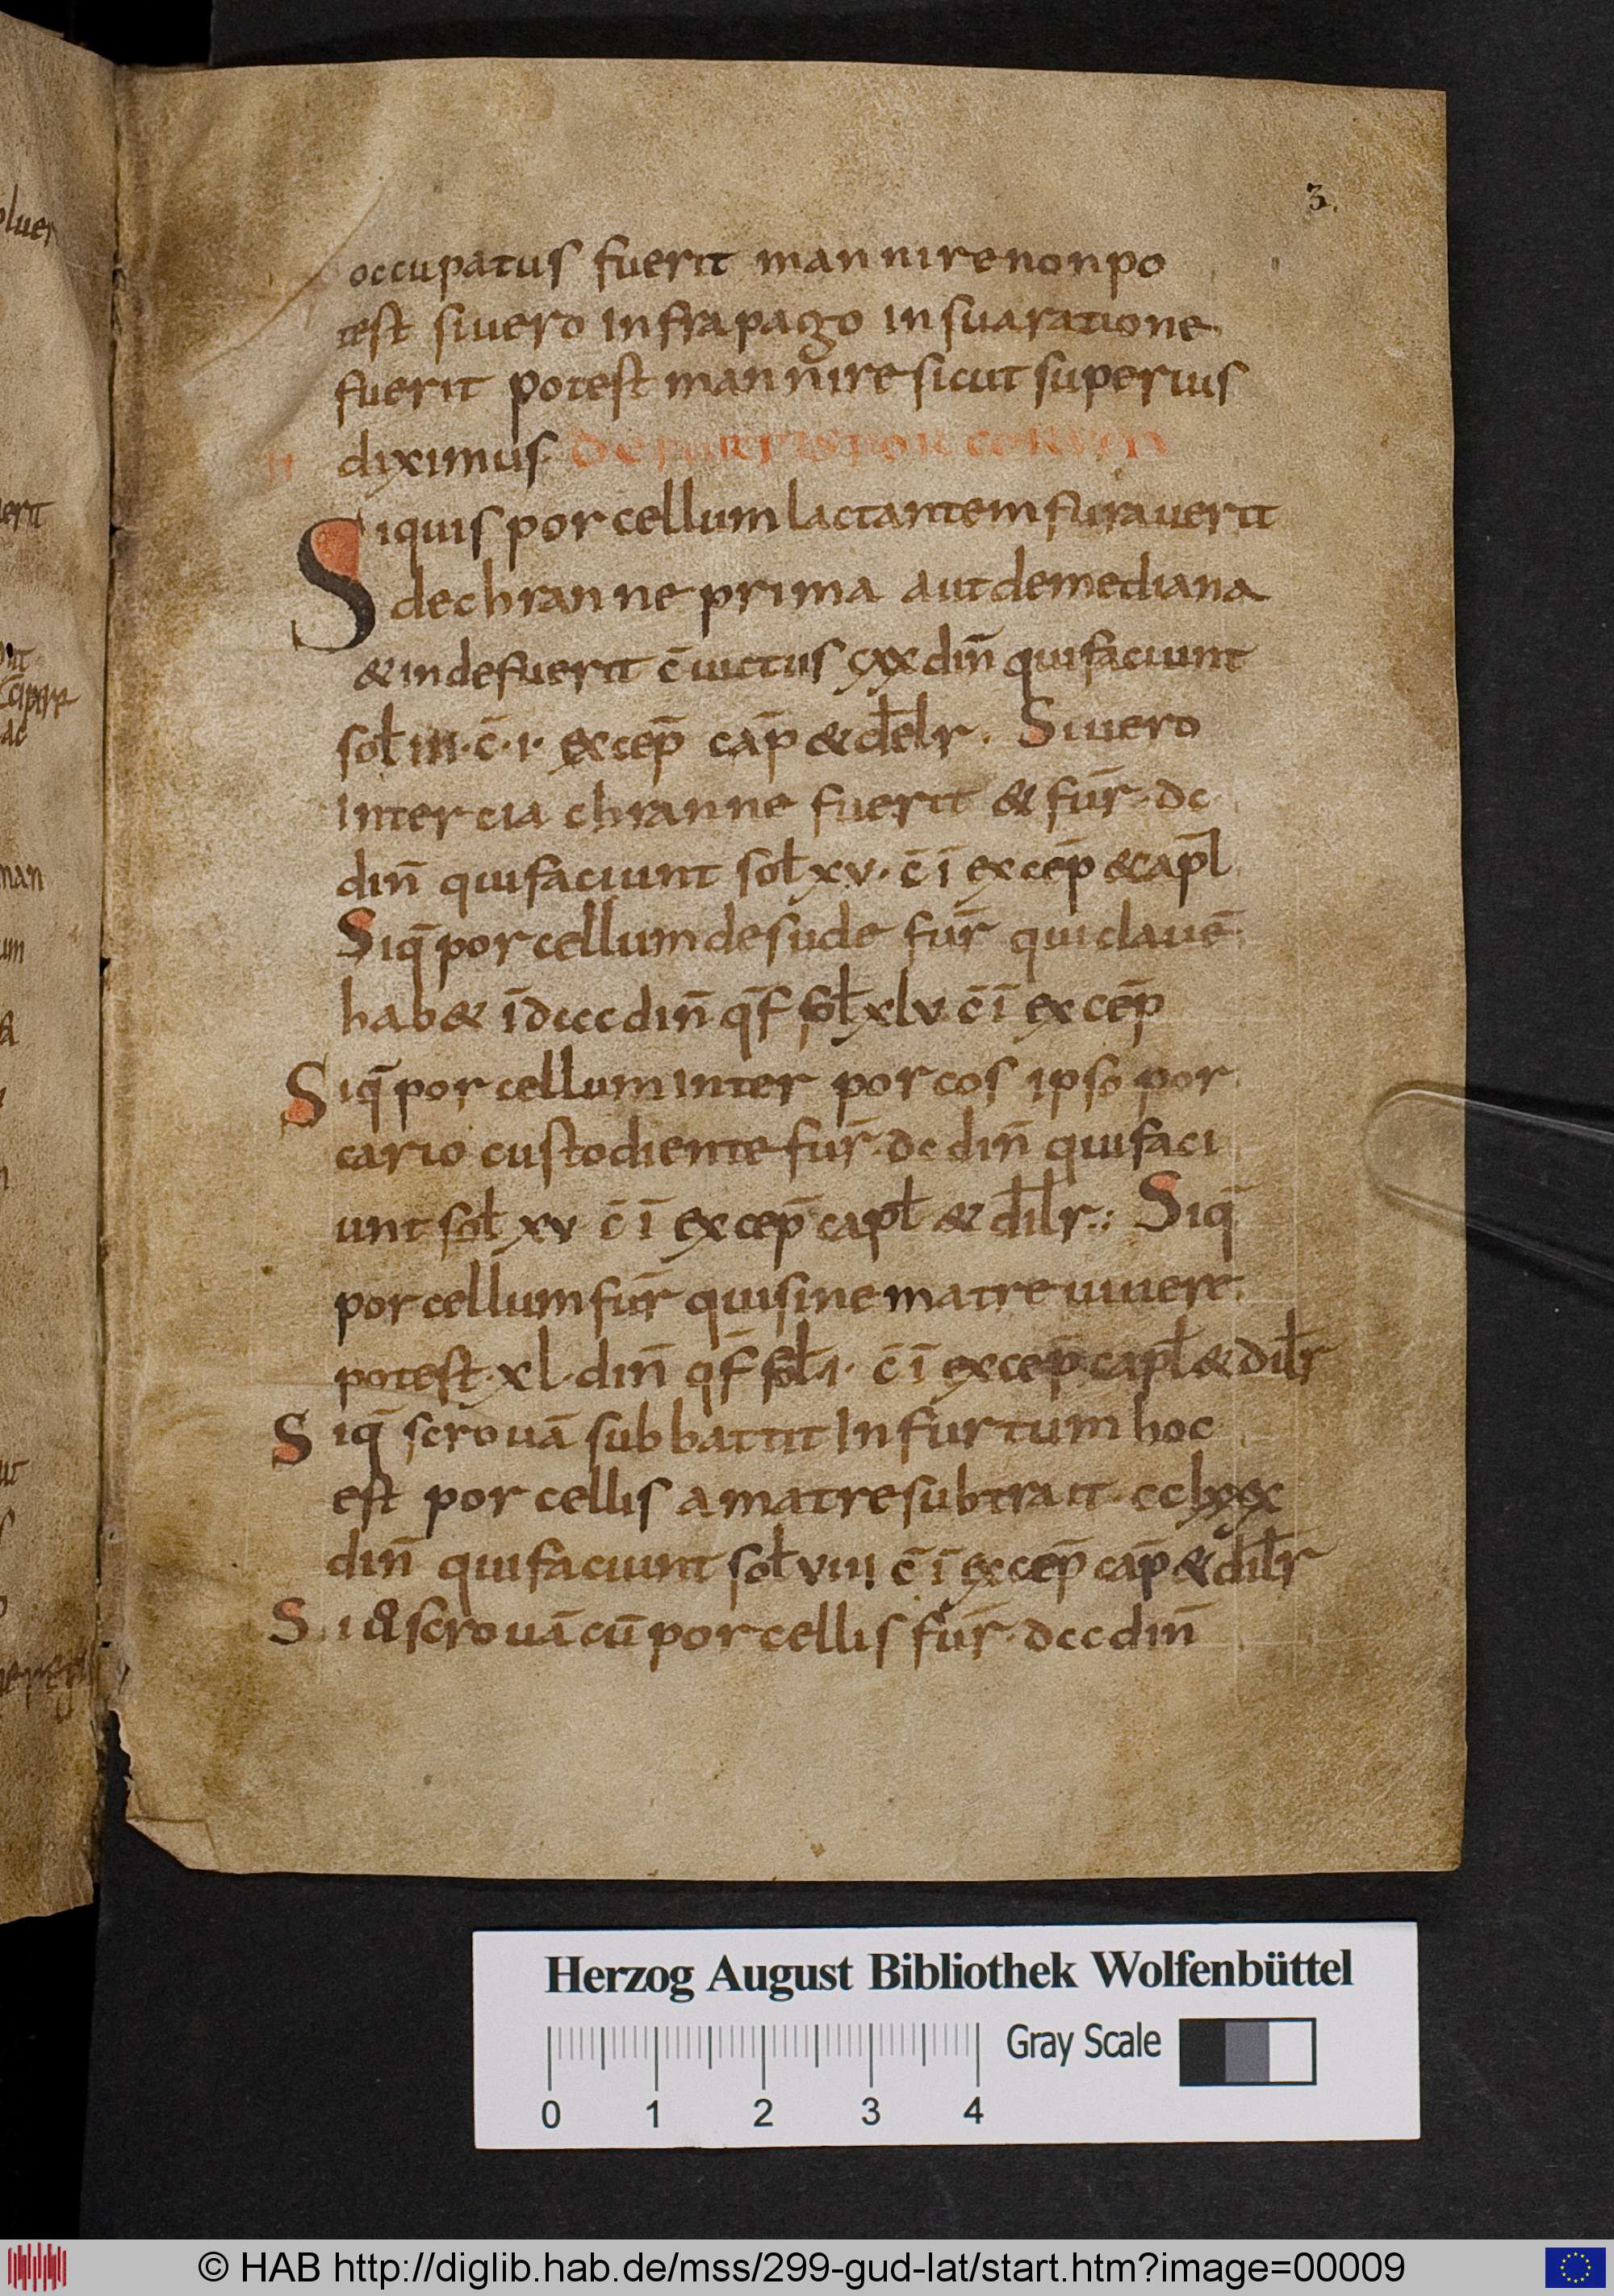 3.
occupatus fuerit mannire non po
test si uero infra pago in sua ratione
fuerit potest mannire sicut superius
diximus. De furtis porcorum
Siquis porcellum lactantem furauerit
de chranne prima aut de mediana
& inde fuerit c̄uictus cxx din̄ qui faciunt
sol̄ iii· c̄· i· excep̄ cap̄ & del̄r. Si uero
in tercia chranne fuerit & fur̄· dc
din̄ qui faciunt sol̄ xv· c̄ ī excep̄ & capl̄
Siq̄ porcellum de sude fur̄ qui clauē
hab& ī dccc din̄ q̄f sol̄ xlv c̄ ī excep̄
Siq̄ porcellum inter porcos ipso por
cario custodiente fur̄· dc din̄ qui faci
unt sol̄ xv c̄ ī excep̄ capl̄ & dil̄r.: Siq̄
porcellum fur̄ qui sine matre uiuere
potest· xl· din̄ q̄f sol̄ i· c̄ ī excep̄ capl̄ & dil̄r
Siq̄ scrouā subbattit in furtum hoc
est porcellis a matre subtrait· cclxxx
din̄ qui faciunt sol̄ viii c̄ ī excep̄ cap̄ & dil̄r
Siq̄ scrouā cū porcellis fur̄· dcc din̄
Herzog August Bibliothek Wolfenbüttel
Gray Scale
0 1 2 3 4
© HAB http://diglib.hab.de/mss/299-gud-lat/start.htm?image=00009